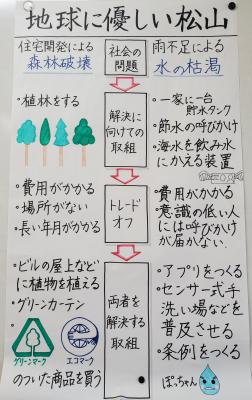 地球に優しい松山
住宅開発による
森林破壊
社会の
問題
雨不足による
水の枯渇
・植林をする
解決に
向けての
取組
・一家に一台
貯水タンク
・節水の呼びかけ
・海水を飲み水
にかえる装置
・費用がかかる
・場所がない
・長い年月がかかる
トレード
オフ
・費用がかかる
・意識の低い人
には呼びかけ
が届かない。
・ビルの屋上などに
に植物を植える
・グリーンカーテン
グリーンマーク
エコマーク
のついた商品を買う
両者を
解決する
取組
・アプリをつくる
・センサー式手
洗い場などを
普及させる
・条例をつくる
ぽっちゃん